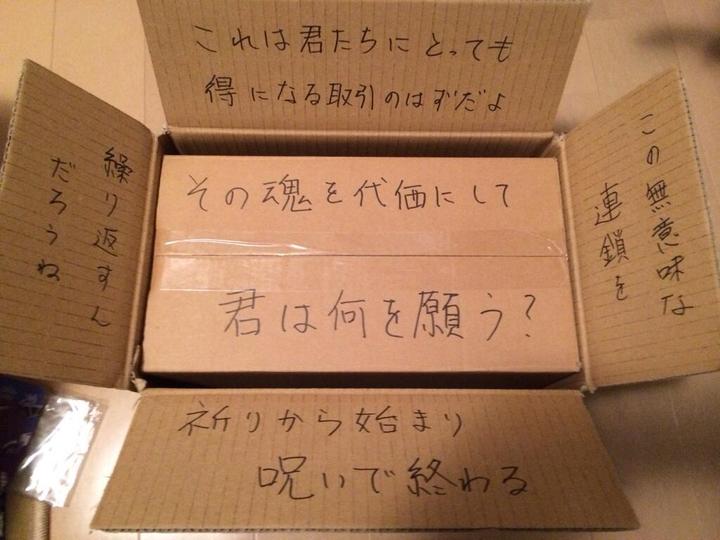 これは君たちにとっても
得になる取引のはずだよ
この無意味な
連鎖を
繰り返すん
だろうね
その魂を代価にして
君は何を願う?
祈りから始まり
呪いで終わる